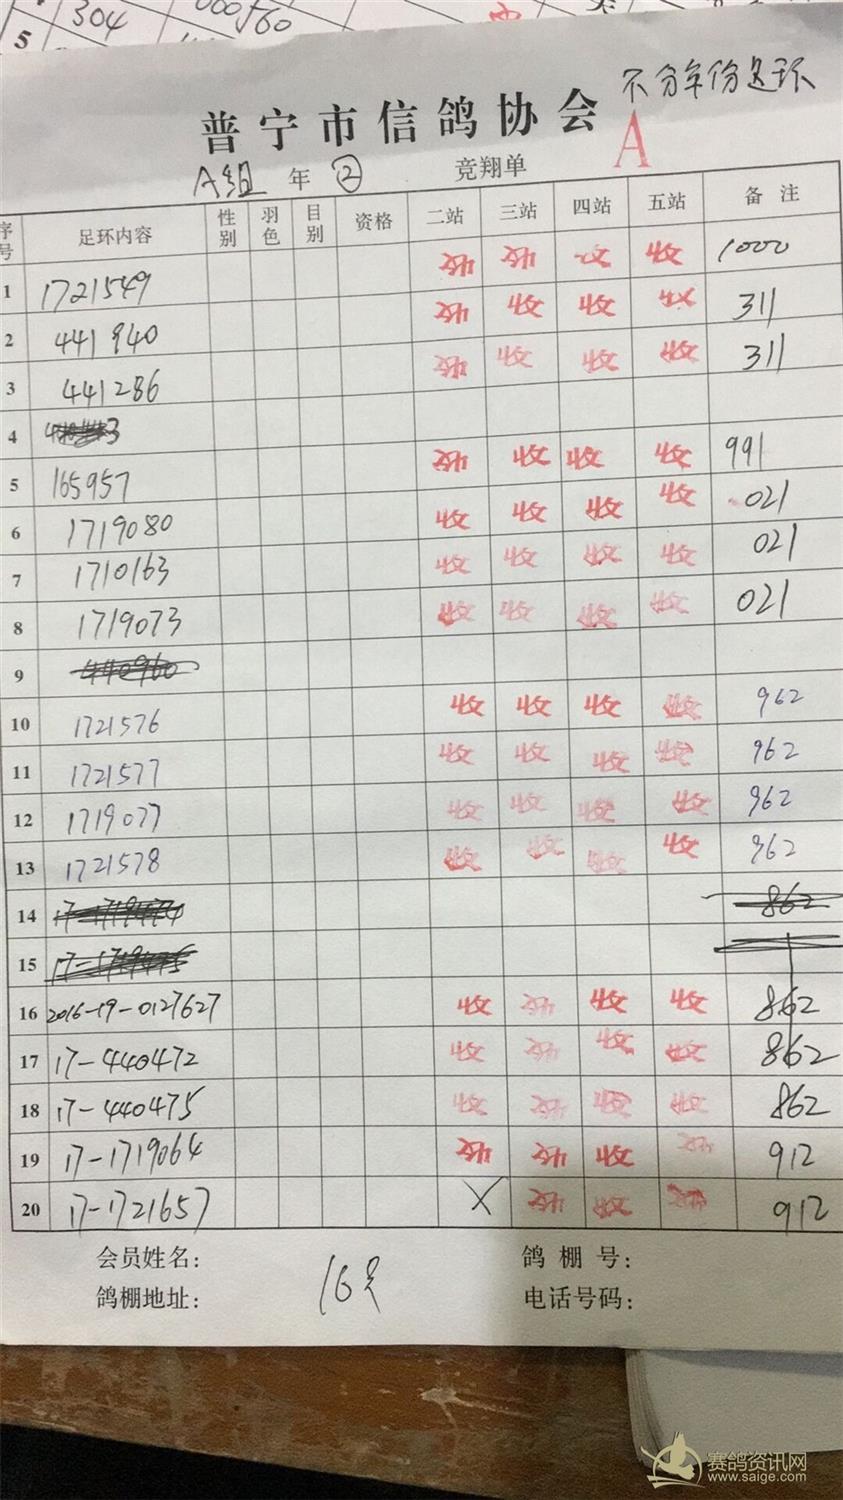 5 304 000560
不分年份足环
普宁市信鸽协会 A
A组 年 ② 竞翔单
序号 足环内容 性别 羽色 目别 资格 二站 三站 四站 五站 备 注
1 1721549 收 收 收 收 1000
2 441940 收 收 收 收 311
3 441286 收 收 收 收 311
4
5 165957 收 收 收 收 991
6 1719080 收 收 收 收 021
7 1710163 收 收 收 收 021
8 1719073 收 收 收 收 021
9 440960
10 1721576 收 收 收 收 962
11 1721577 收 收 收 收 962
12 1719077 收 收 收 收 962
13 1721578 收 收 收 收 962
14 862
15
16 2016-19-0127627 收 收 收 收 862
17 17-440472 收 收 收 收 862
18 17-440475 收 收 收 收 862
19 17-1719064 收 收 收 收 912
20 17-1721657 X 收 收 收 912
会员姓名： 鸽 棚 号：
鸽棚地址： 16只 电话号码：
赛鸽资讯网
www.saige.com